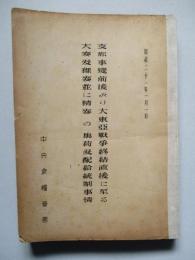 昭和二十一年一月一日
支那事變前後より大東亞戰爭終結直後に至る
大麥及裸麥並に精麥の集荷及配給統制事情
中央食糧營團